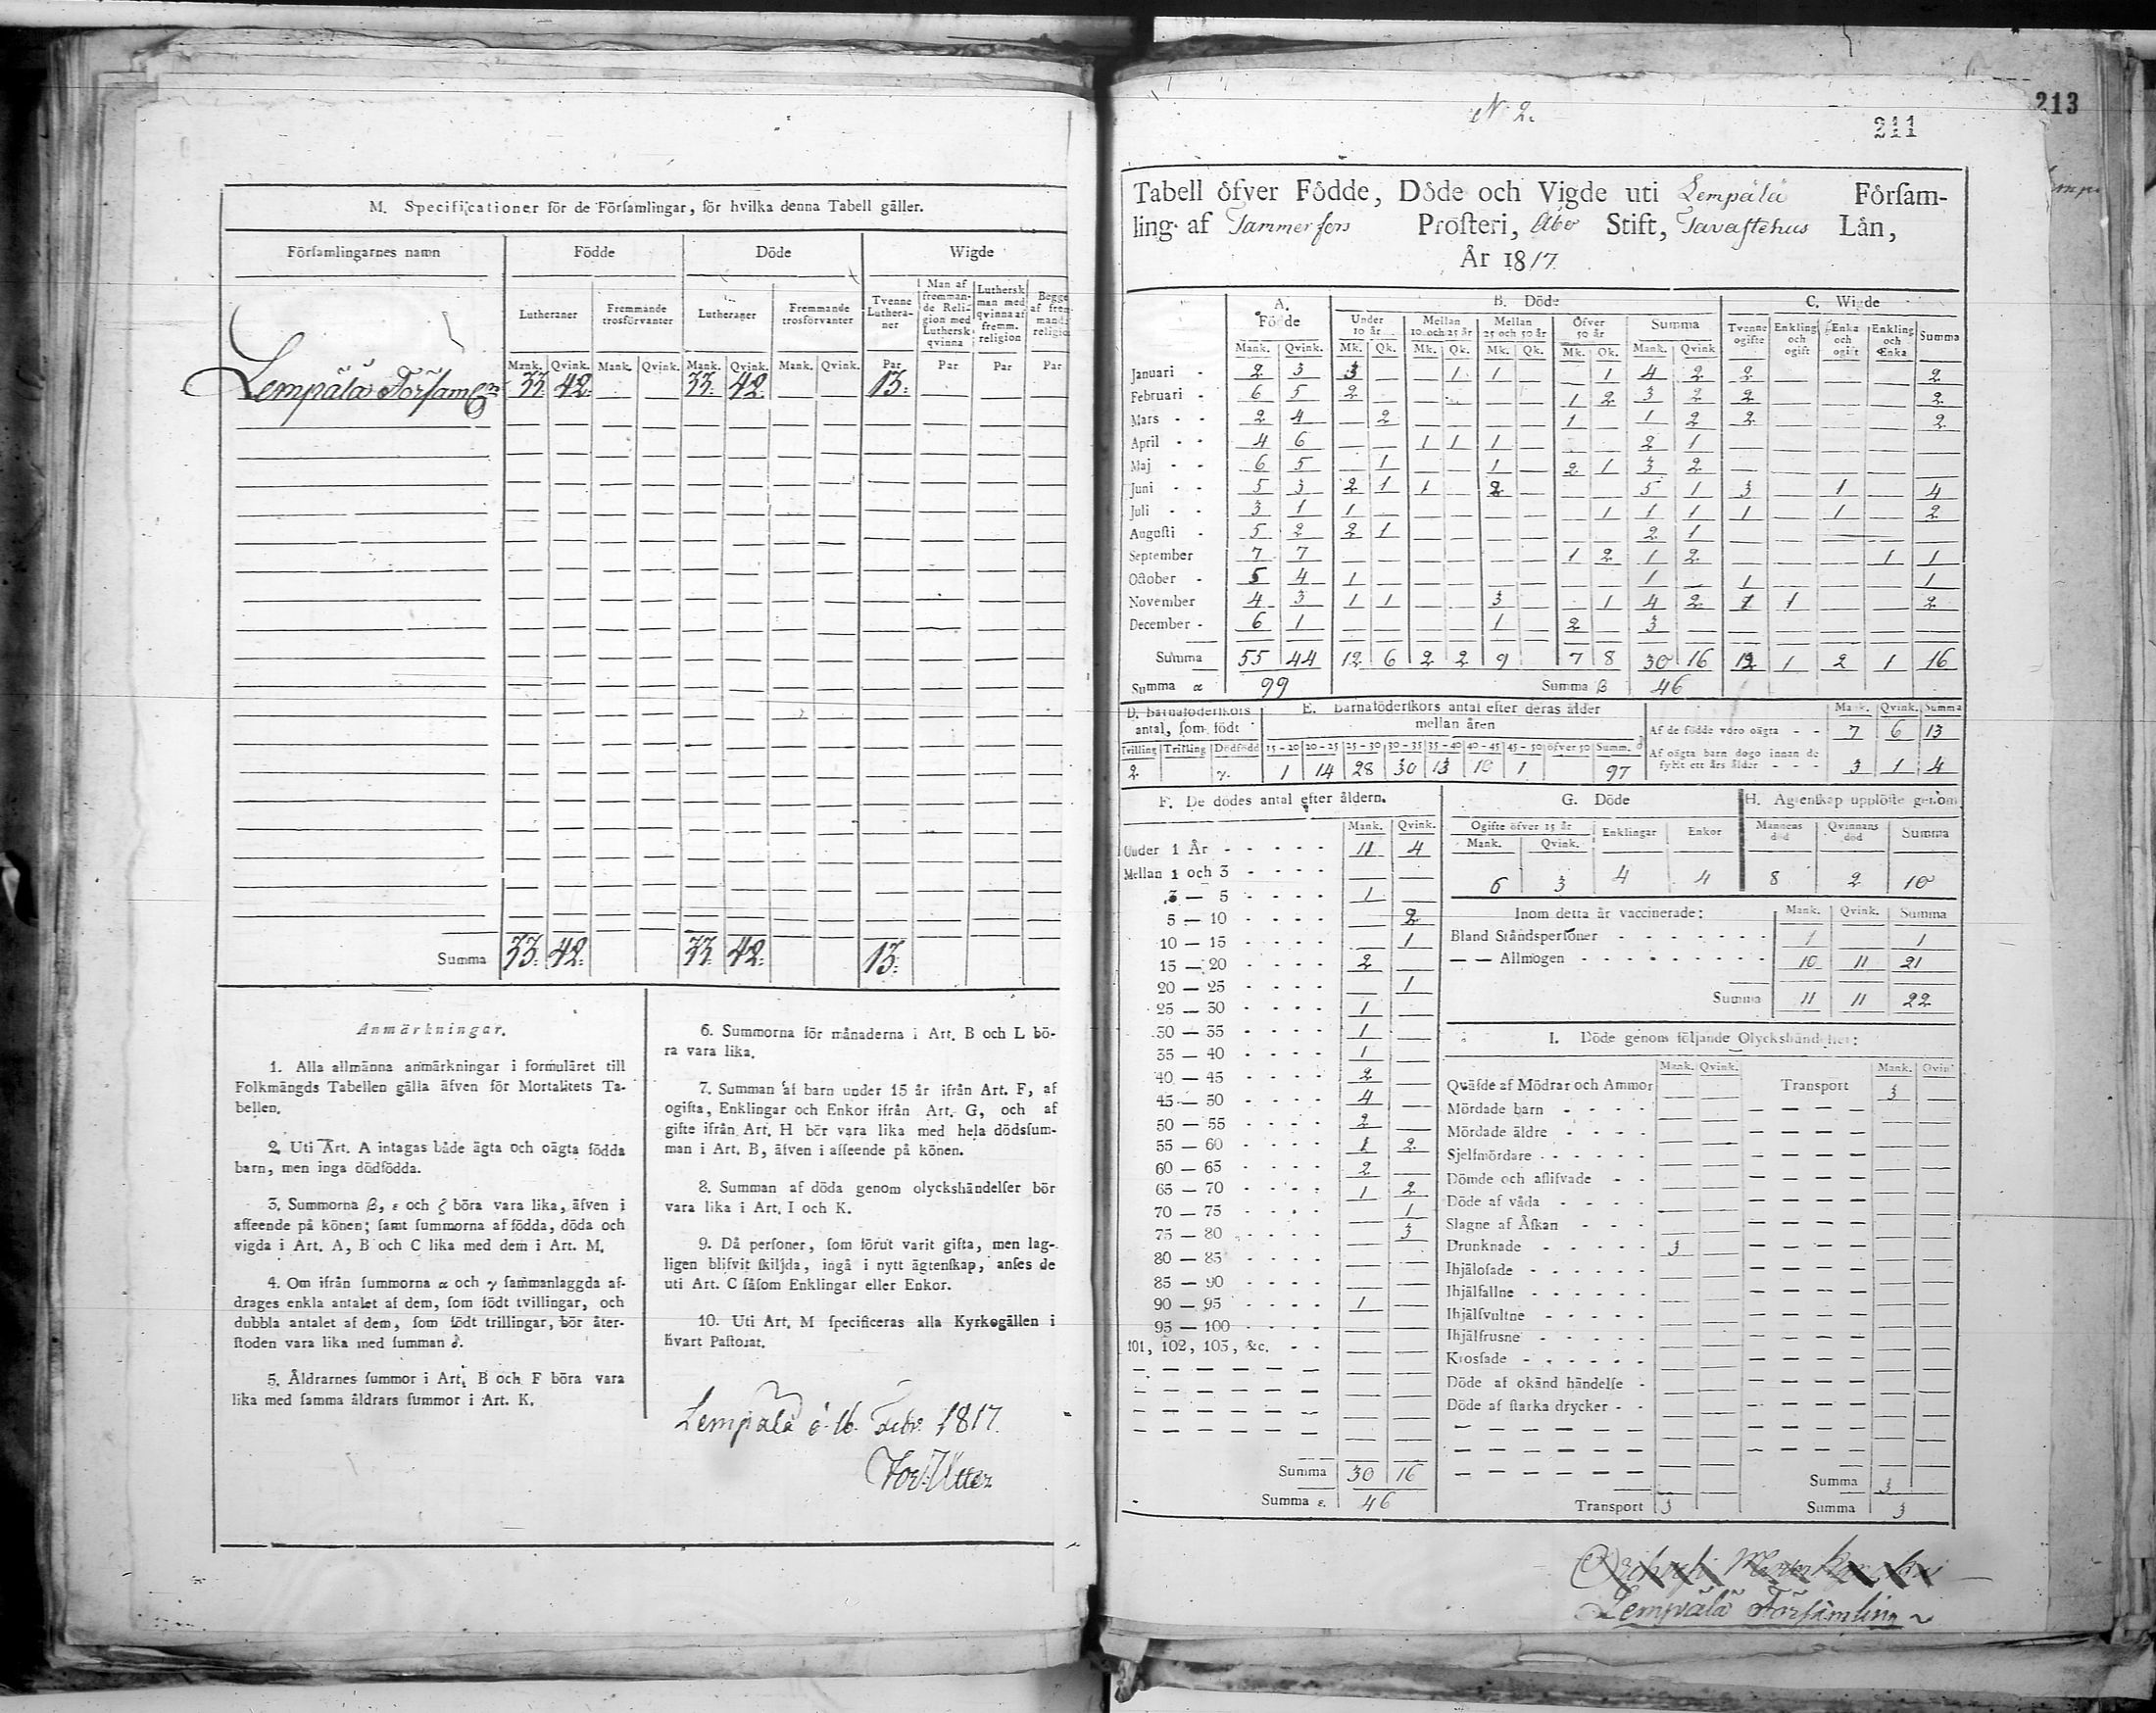 M. Specificationer för de Församlingar, för hvilka denna Tabell gäller.
Församlingarnes namn | Födde | Döde | Wigde
Lutheraner | Fremmande trosförvanter | Lutheraner | Fremmande trosförvanter | Tvenne Lutheraner | Man af fremmande Religion med Luthersk qvinna | Luthersk man med qvinna af fremm. religion | Begge af
Mank. Qvink. Mank. Qvink. Mank. Qvink. Mank. Qvink. Par Par Par Par
Lempälä Församl:n 33. 42. 33. 42. 13.
Summa 33. 42. 33. 42. 13.
Anmärkningar.
1. Alla allmänna anmärkningar i formuläret till
Folkmängds Tabellen gälla äfven för Mortalitets Ta-
bellen.
2. Uti Art. A intagas både ägta och oägta födda
barn, men inga dödfödda.
3. Summorna β, ε och ζ böra vara lika, äfven i
affeende på könen; samt summorna af födda, döda och
vigda i Art. A, B och C lika med dem i Art. M.
4. Om ifrån summorna α och γ sammanlaggda af-
drages enkla antalet af dem, som födt tvillingar, och
dubbla antalet af dem, som födt trillingar, bör åter-
stoden vara lika med summan δ.
5. Åldrarnes summor i Art. B och F böra vara
lika med samma åldrars summor i Art. K.
6. Summorna för månaderna i Art. B och L bö-
ra vara lika.
7. Summan af barn under 15 år ifrån Art. F, af
ogifta, Enklingar och Enkor ifrån Art. G, och af
gifte ifrån Art. H bör vara lika med hela dödssum-
man i Art. B, äfven i affeende på könen.
8. Summan af döda genom olyckshändelser bör
vara lika i Art. I och K.
9. Då personer, som förut varit gifta, men lag-
ligen blifvit skiljda, ingå i nytt ägtenskap, anses de
uti Art. C såsom Enklingar eller Enkor.
10. Uti Art. M specificeras alla Kyrkogällen i
hvart Pastorat.
Lempälä d. 16. Febr. 1817.
N 2.
213
211
Tabell öfver Födde, Döde och Vigde uti Lempälä Försam-
ling af Tammerfors Prosteri, Åbo Stift, Tavastehus Län,
År 1817
A. Födde | B. Döde | C. Wigde
Under 10 år | Mellan 10 och 25 år | Mellan 25 och 50 år | Öfver 50 år | Summa | Tvenne ogifte | Enkling och ogift | Enka och ogift | Enkling och Enka | Summa
Mank. Qvink. Mk. Qk. Mk. Qk. Mk. Qk. Mk. Qk. Mank. Qvink
Januari 2 3 3 — — 1 1 — — 1 4 2 2 — — — 2
Februari 6 5 2 — — — — — 1 2 3 2 2 — — — 2
Mars 2 4 — 2 — — — — 1 — 1 2 2 — — — 2
April 4 6 — — 1 1 1 — — — 2 1 — — — — —
Maj 6 5 — 1 — — 1 — 2 1 3 2 — — — — —
Juni 5 3 2 1 1 — 2 — — — 5 1 3 — 1 — 4
Juli 3 1 1 — — — — — — 1 1 1 1 — 1 — 2
Augusti 5 2 2 1 — — — — — — 2 1 — — — — —
September 7 7 — — — — — — 1 2 1 2 — — — 1 1
October 5 4 1 — — — — — — — 1 — 1 — — — 1
November 4 3 1 1 — — 3 — — 1 4 2 1 1 — — 2
December 6 1 — — — — 1 — 2 — 3 — — — — — —
Summa 55 44 12 6 2 2 9 7 8 30 16 12 1 2 1 16
Summa α 99 Summa β 46
D. Barnaföderskors antal, som födt
Tvilling Trilling Dödfödd
2 γ.
E. Barnaföderskors antal efter deras ålder
mellan åren
15-20 20-25 25-30 30-35 35-40 40-45 45-50 öfver 50 Summ. δ
1 14 28 30 13 10 1 97
Mank. Qvink. Summa
Af de födde voro oägta 7 6 13
Af oägta barn dogo innan de
fyllt ett års ålder 3 1 4
F. De dödes antal efter åldern.
Mank. Qvink.
Under 1 År 11 4
Mellan 1 och 3 — —
3 — 5 1 —
5 — 10 2
10 — 15 — 1
15 — 20 2 —
20 — 25 — 1
25 — 30 1 —
30 — 35 1 —
35 — 40 1 —
40 — 45 2 —
45 — 50 4 —
50 — 55 2 —
55 — 60 1 2
60 — 65 2 —
65 — 70 1 2
70 — 75 — 1
75 — 80 — 3
80 — 85 — —
85 — 90 — —
90 — 95 1 —
95 — 100 — —
101, 102, 103, &c. — —
Summa 30 16
Summa ε. 46
G. Döde
Ogifte öfver 15 år | Enklingar | Enkor
Mank. Qvink.
6 3 4 4
H. Ägtenskap upplöste genom
Mannens död | Qvinnans död | Summa
8 2 10
Inom detta år vaccinerade: Mank. Qvink. Summa
Bland Ståndspersoner 1 1
— — Allmogen 10 11 21
Summa 11 11 22
I. Döde genom följande Olyckshändelser:
Mank. Qvink. Mank. Qvin
Qväfde af Mödrar och Ammor — — Transport 3
Mördade barn
Mördade äldre
Sjelfmördare
Dömde och aflifvade
Döde af våda
Slagne af Åskan
Drunknade 3
Ihjälosade
Ihjälfallne
Ihjälsvultne
Ihjälfrusne
Krossade
Döde af okänd händelse
Döde af starka drycker
Summa 3
Transport 3 Summa 3
Lempälä Församling